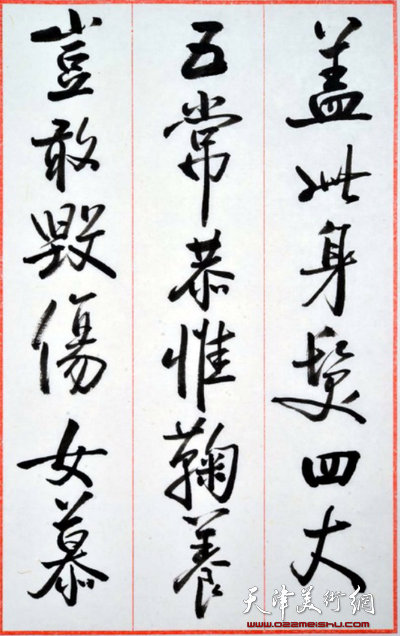 盖此身髮四大
五常恭惟鞠養
豈敢毀傷女慕
天津美術網
www.022meishu.com